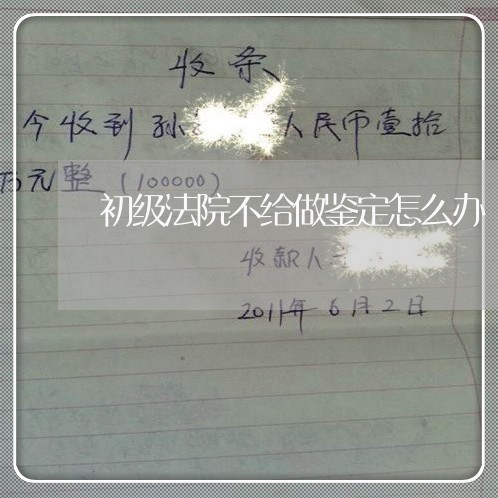 收条
今收到孙 人民币壹拾
万元整（100000）
初级法院不给做鉴定怎么办
收款人
2011年6月2日